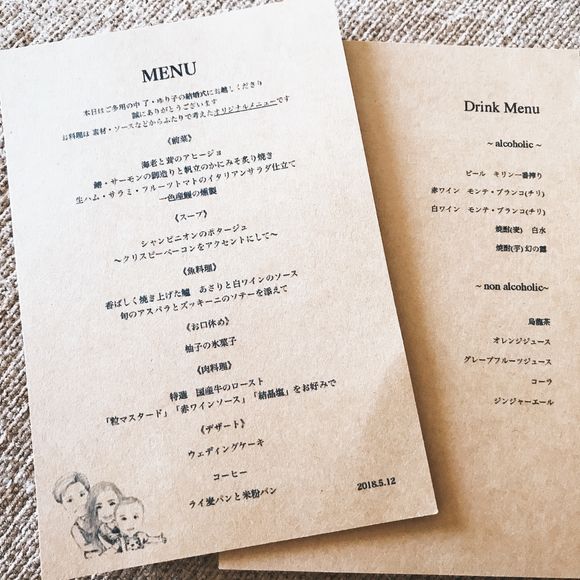 MENU
本日はご多用の中 了・ゆり子の結婚式にお越しくださり
誠にありがとうございます
お料理は 素材・ソースなどからふたりで考えたオリジナルメニューです
《前菜》
海老と茸のアヒージョ
鯛・サーモンの御造りと帆立のかにみそ炙り焼き
生ハム・サラミ・フルーツトマトのイタリアンサラダ仕立て
一色産鰻の燻製
《スープ》
シャンピニオンのポタージュ
～クリスピーベーコンをアクセントにして～
《魚料理》
香ばしく焼き上げた鱸 あさりと白ワインのソース
旬のアスパラとズッキーニのソテーを添えて
《お口休め》
柚子の氷菓子
《肉料理》
特選 国産牛のロースト
「粒マスタード」「赤ワインソース」「結晶塩」をお好みで
《デザート》
ウェディングケーキ
コーヒー
ライ麦パンと米粉パン
2018.5.12
Drink Menu
~ alcoholic ~
ビール キリン一番搾り
赤ワイン モンテ・ブランコ(チリ)
白ワイン モンテ・ブランコ(チリ)
焼酎(麦) 白水
焼酎(芋) 幻の露
~ non alcoholic~
烏龍茶
オレンジジュース
グレープフルーツジュース
コーラ
ジンジャーエール